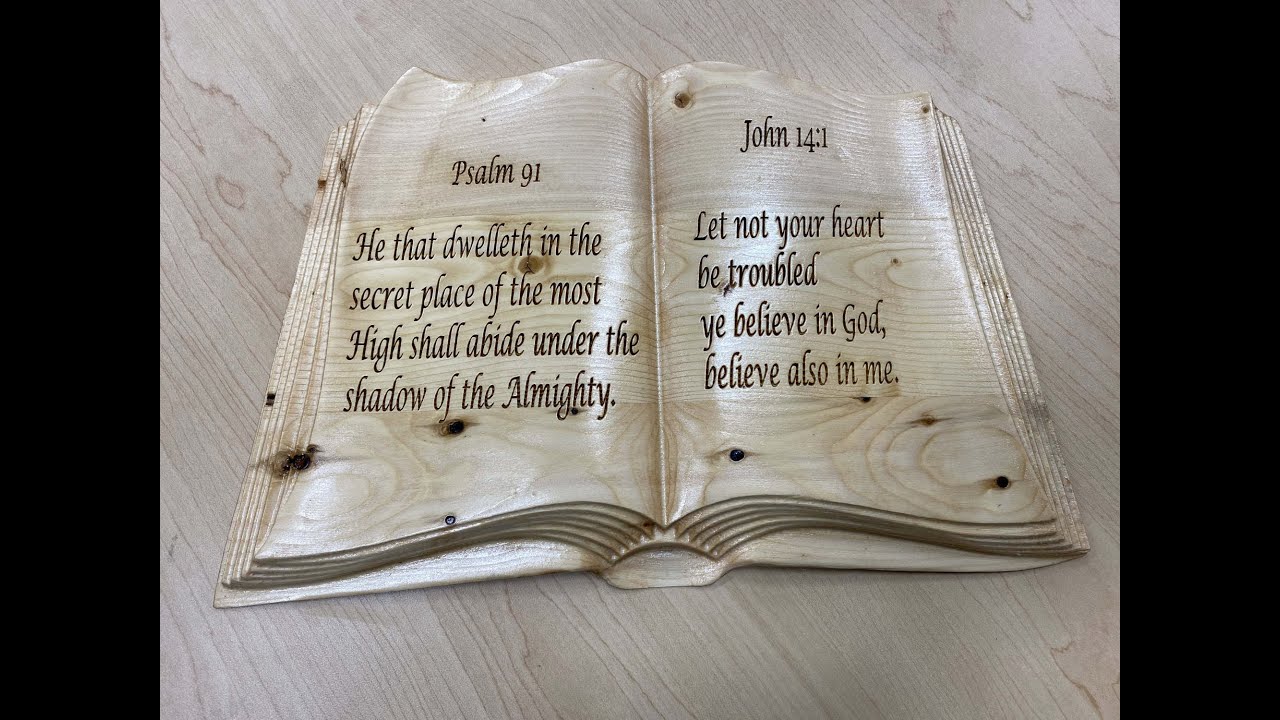 Psalm 91
He that dwelleth in the
secret place of the most
High shall abide under the
shadow of the Almighty.
John 14:1
Let not your heart
be troubled
ye believe in God,
believe also in me.